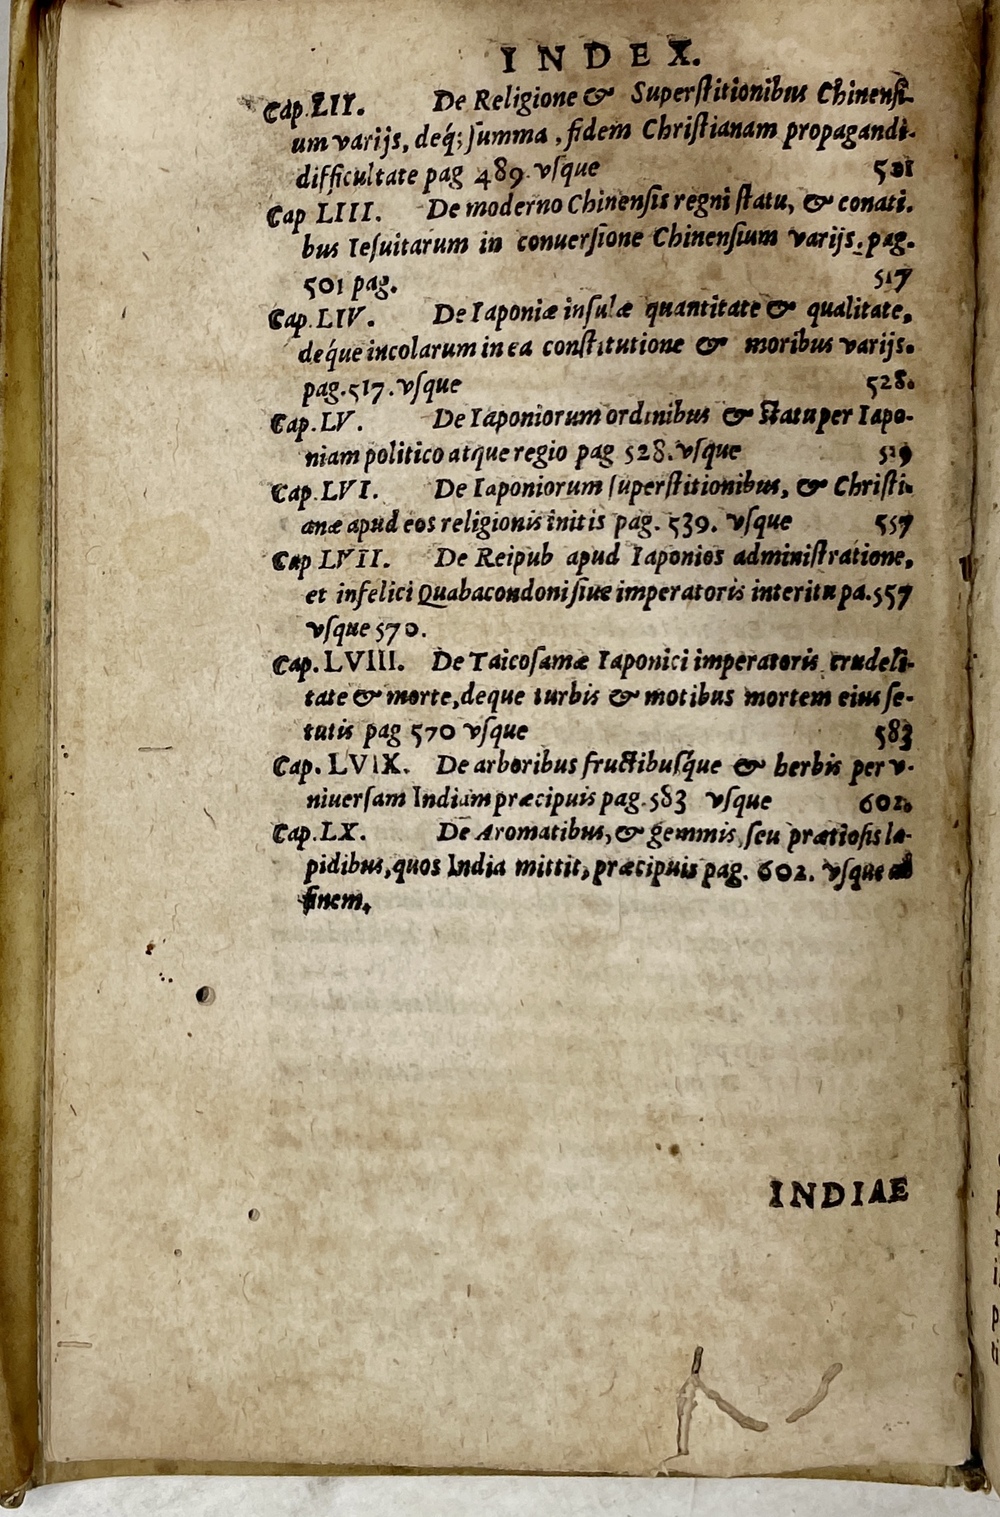 INDEX.
Cap. LII. De Religione & Superſtitionibus Chinenſi-
um varijs, deq́; ſumma, fidem Chriſtianam propagandi-
difficultate pag 489. vſque 501
Cap LIII. De moderno Chinenſis regni ſtatu, & conati.
bus Ieſuitarum in conuerſione Chinenſium varijs. pag.
501 pag. 517
Cap. LIV. De Iaponiæ inſulæ quantitate & qualitate,
deq́ue incolarum in ea conſtitutione & moribus varijs.
pag. 517. vſque 528.
Cap. LV. De Iaponiorum ordinibus & ſtatu per Iapo-
niam politico atque regio pag 528. vſque 529
Cap. LVI. De Iaponiorum ſuperſtitionibus, & Chriſti-
anæ apud eos religionis initis pag. 539. vſque 557
Cap LVII. De Reipub apud Iaponios adminiſtratione,
et infelici Quabacondoni ſiue imperatoris interitu pa. 557
vſque 570.
Cap. LVIII. De Taicoſamæ Iaponici imperatoris crudeli-
tate & morte, deque turbis & motibus mortem eius ſe-
tutis pag 570 vſque 583
Cap. LVIX. De arboribus fructibuſque & herbis per v-
niuerſam Indiam præcipuis pag. 583 vſque 602.
Cap. LX. De Aromatibus, & gemmis, ſeu prætioſis la-
pidibus, quos India mittit, præcipuis pag. 602. vſque ad
finem.
INDIAE